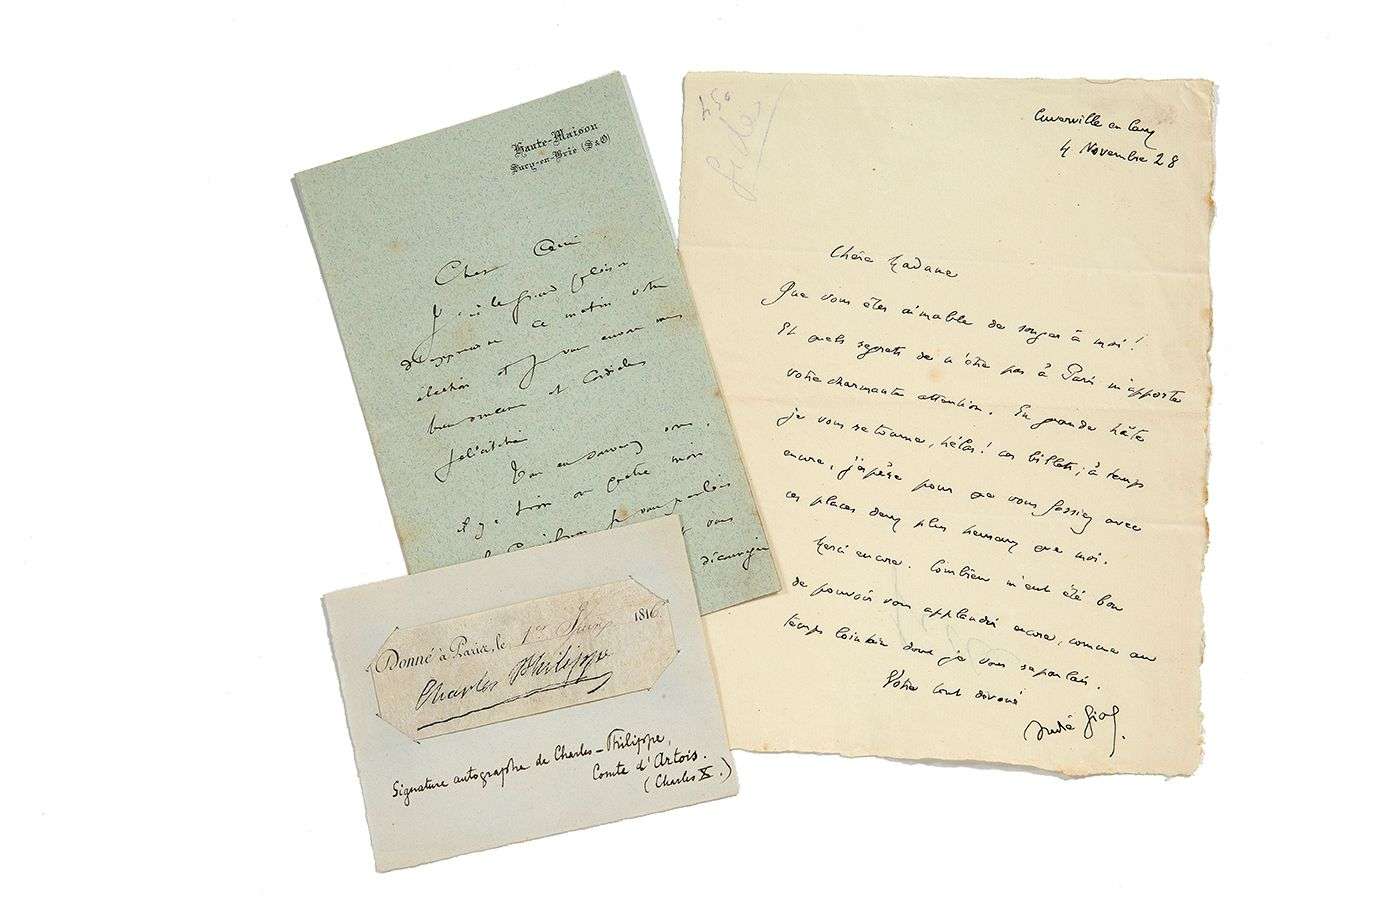 Haute-Maison
Sucy-en-Brie (S&O)
Cher Ami
J'ai le grand plaisir
d'apprendre ce matin votre
élection et je vous envoie mes
bien sincères et cordiales
félicitations
vous
il y a trois ou quatre mois
je vous parlais
vous
décourager
Donné à Paris, le 1er Juin 1816.
Charles Philippe
Signature autographe de Charles-Philippe,
Comte d'Artois.
(Charles X.)
450
Gide
Cuverville en Caux
4 Novembre 28
Chère Madame
Que vous êtes aimable de songer à moi!
Et quels regrets de n'être pas à Paris m'apporte
votre charmante attention. En grande hâte
je vous retourne, hélas! ces billets; à temps
encore, j'espère pour que vous fassiez avec
ces places deux plus heureux que moi.
Merci encore. Combien m'eut été bon
de pouvoir vous applaudir encore, comme au
temps lointain dont je vous reparlais.
Votre tout dévoué
André Gide.